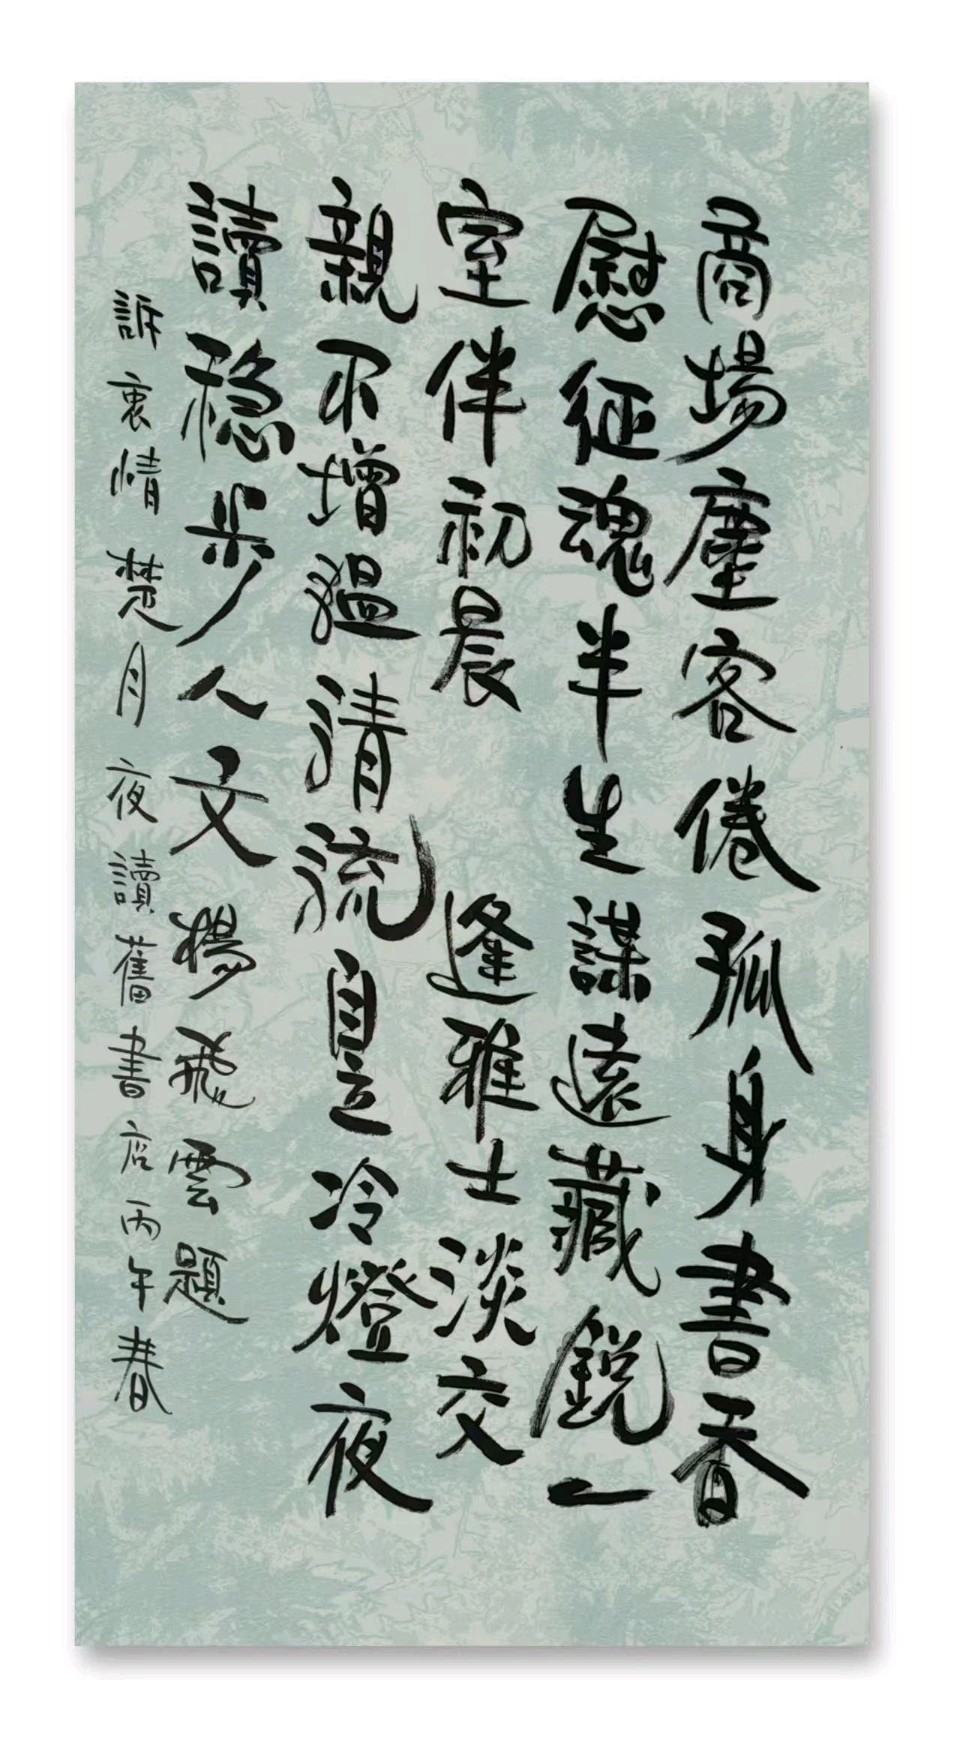 商場塵客倦孤身書香
慰征魂半生謀遠藏鋭一
室伴初晨　逢雅士淡交
親不增溫清流自足冷燈夜
讀稳步人文楊飛雲題
訴衷情楚月夜讀舊書店丙午春